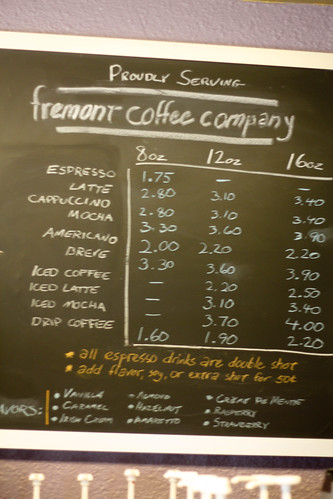 PROUDLY SERVING
fremont coffee company
8oz 12oz 16oz
ESPRESSO 1.75 — —
LATTE 2.80 3.10 3.40
CAPPUCCINO 2.80 3.10 3.40
MOCHA 3.30 3.60 3.90
AMERICANO 2.00 2.20 2.20
BREVE 3.30 3.60 3.90
ICED COFFEE — 2.20 2.50
ICED LATTE — 3.10 3.40
ICED MOCHA — 3.70 4.00
DRIP COFFEE 1.60 1.90 2.20
* all espresso drinks are double shot
* add flavor, soy, or extra shot for 50¢
• VANILLA • ALMOND • CREME DE MENTHE
AVORS: • CARAMEL • HAZELNUT • RASPBERRY
• IRISH CREAM • AMARETTO • STRAWBERRY